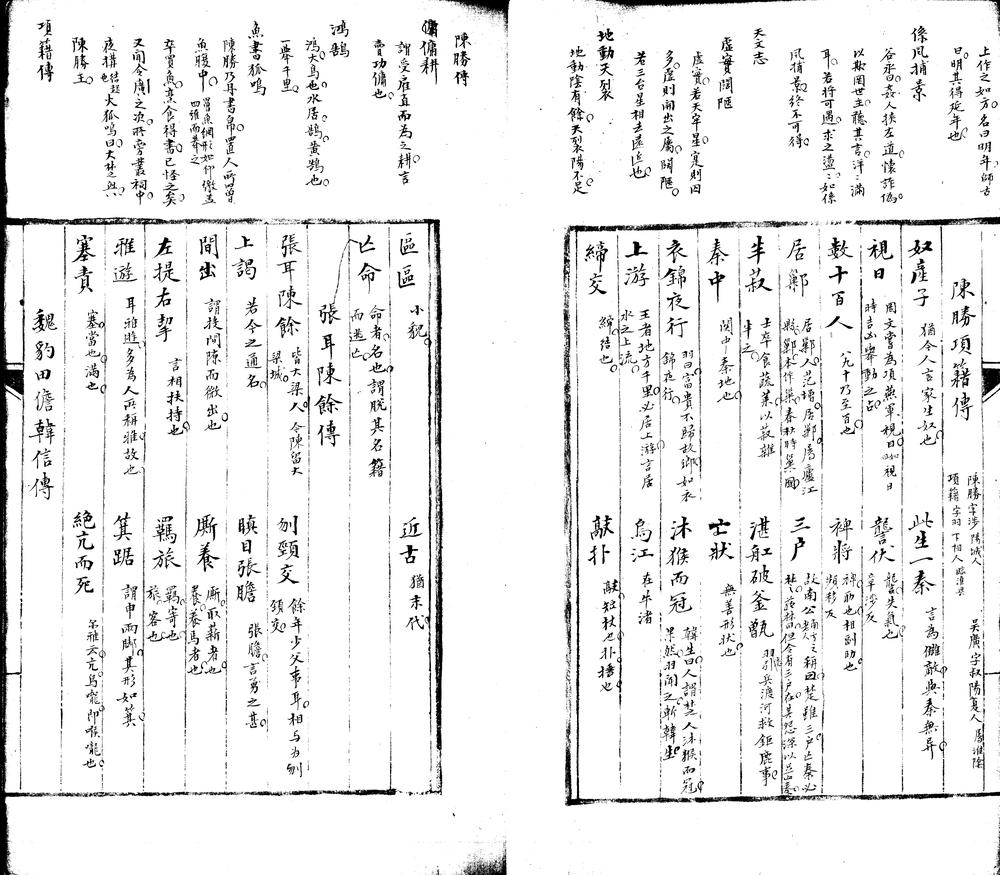 上作之如方名曰明年師古
曰明其得延年也
係風捕景
谷永曰姦人挾左道懷詐偽
以欺罔世主聽其言洋〻滿
耳若將可遇求之盪〻如係
風捕景終不可得
天文志
虛實闊陿
虛實若天牢星實則囚
多虛則開出之屬闊陿
若三台星相去遠近也
地動天裂
地動陰有餘天裂陽不足
陳勝項籍傳
陳勝字涉陽城人
項籍字羽下相人臨淮縣
吳廣字叔陽夏人屬淮陽
奴產子
猶今人言家生奴也
此生一秦
言為讎敵與秦無異
視日
周文嘗為項燕軍視日如視日
時吉凶舉動之占
讋伏
讋失氣也
章涉反
數十百人
八九十乃至百也
裨將
裨助也相副助也
頻移反
居鄛
居鄛人范增居鄛屬廬江
縣鄛本作巢春秋時巢國
三戶
故南公稱曰楚雖三戶亡秦必
楚蘇林曰但令有三戶在其怨深足以亡秦
半菽
士卒食蔬菜以菽雜
半之
湛舡破釜甑
羽引兵渡河救鉅鹿事
秦中
關中秦地也
亡狀
無善形狀也
衣錦夜行
羽曰富貴不歸故鄉如衣
錦夜行
沐猴而冠
韓生曰人謂楚人沐猴而冠
果然羽聞之斬韓生
上游
王者地方千里必居上游言居
水之上流
烏江
在牛渚
締交
締結也
敲扑
敲短杖也扑捶也
陳勝傳
傭傭耕
謂受雇直而為之耕言
賣功傭也
鴻鵠
鴻大鳥也水居鵠黃鵠也
一舉千里
魚書狐鳴
陳勝乃丹書帛置人所罾
魚腹中
罾魚網形如仰繖蓋
四維而舉之
卒買魚烹食得書已怪之矣
又間令廣之次所旁叢祠中
夜構
結起
也
火狐鳴曰大楚興
陳勝王
項籍傳
區區
小貌
近古
猶末代
亡命
命者名也謂脫其名籍
而逃亡
張耳陳餘傳
張耳陳餘
皆大梁人今陳留大
梁城
刎頸交
餘年少父事耳相与為刎
頸交
上謁
若今之通名
瞋目張膽
張膽言勇之甚
間出
謂投間隙而微出也
廝養
廝取薪者也
養養馬者也
左提右挈
言相扶持也
羈旅
羈寄也
旅客也
雅遊
耳雅遊多為人所稱雅故也
箕踞
謂申兩腳其形如箕
塞責
塞當也滿也
絕亢而死
尒雅云亢鳥嚨即喉嚨也
魏豹田儋韓信傳